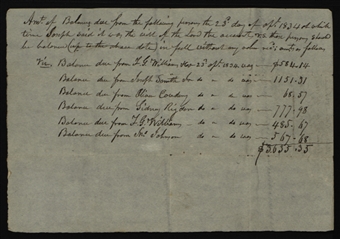 Amt of Balances due from the following persons the 23d day of Apl 1834 at which
time Joseph said it was the will of the Lord the accounts vs these persons should
be balanced (up to the above date) in full without any
Viz Balance due from F. G. Williams & Co 23d Apl 1834 was — $584.14
Balance due from Joseph Smith Jr do do was — 1151.31
Balance due from Oliver Cowdery do do was — 68.57
Balance due from Sidney Rigdon do do was — 777.98
Balance due from F. G. Williams do do was — 485.67
Balance due from Jno Johnson do do was — 567.68
$3635.35